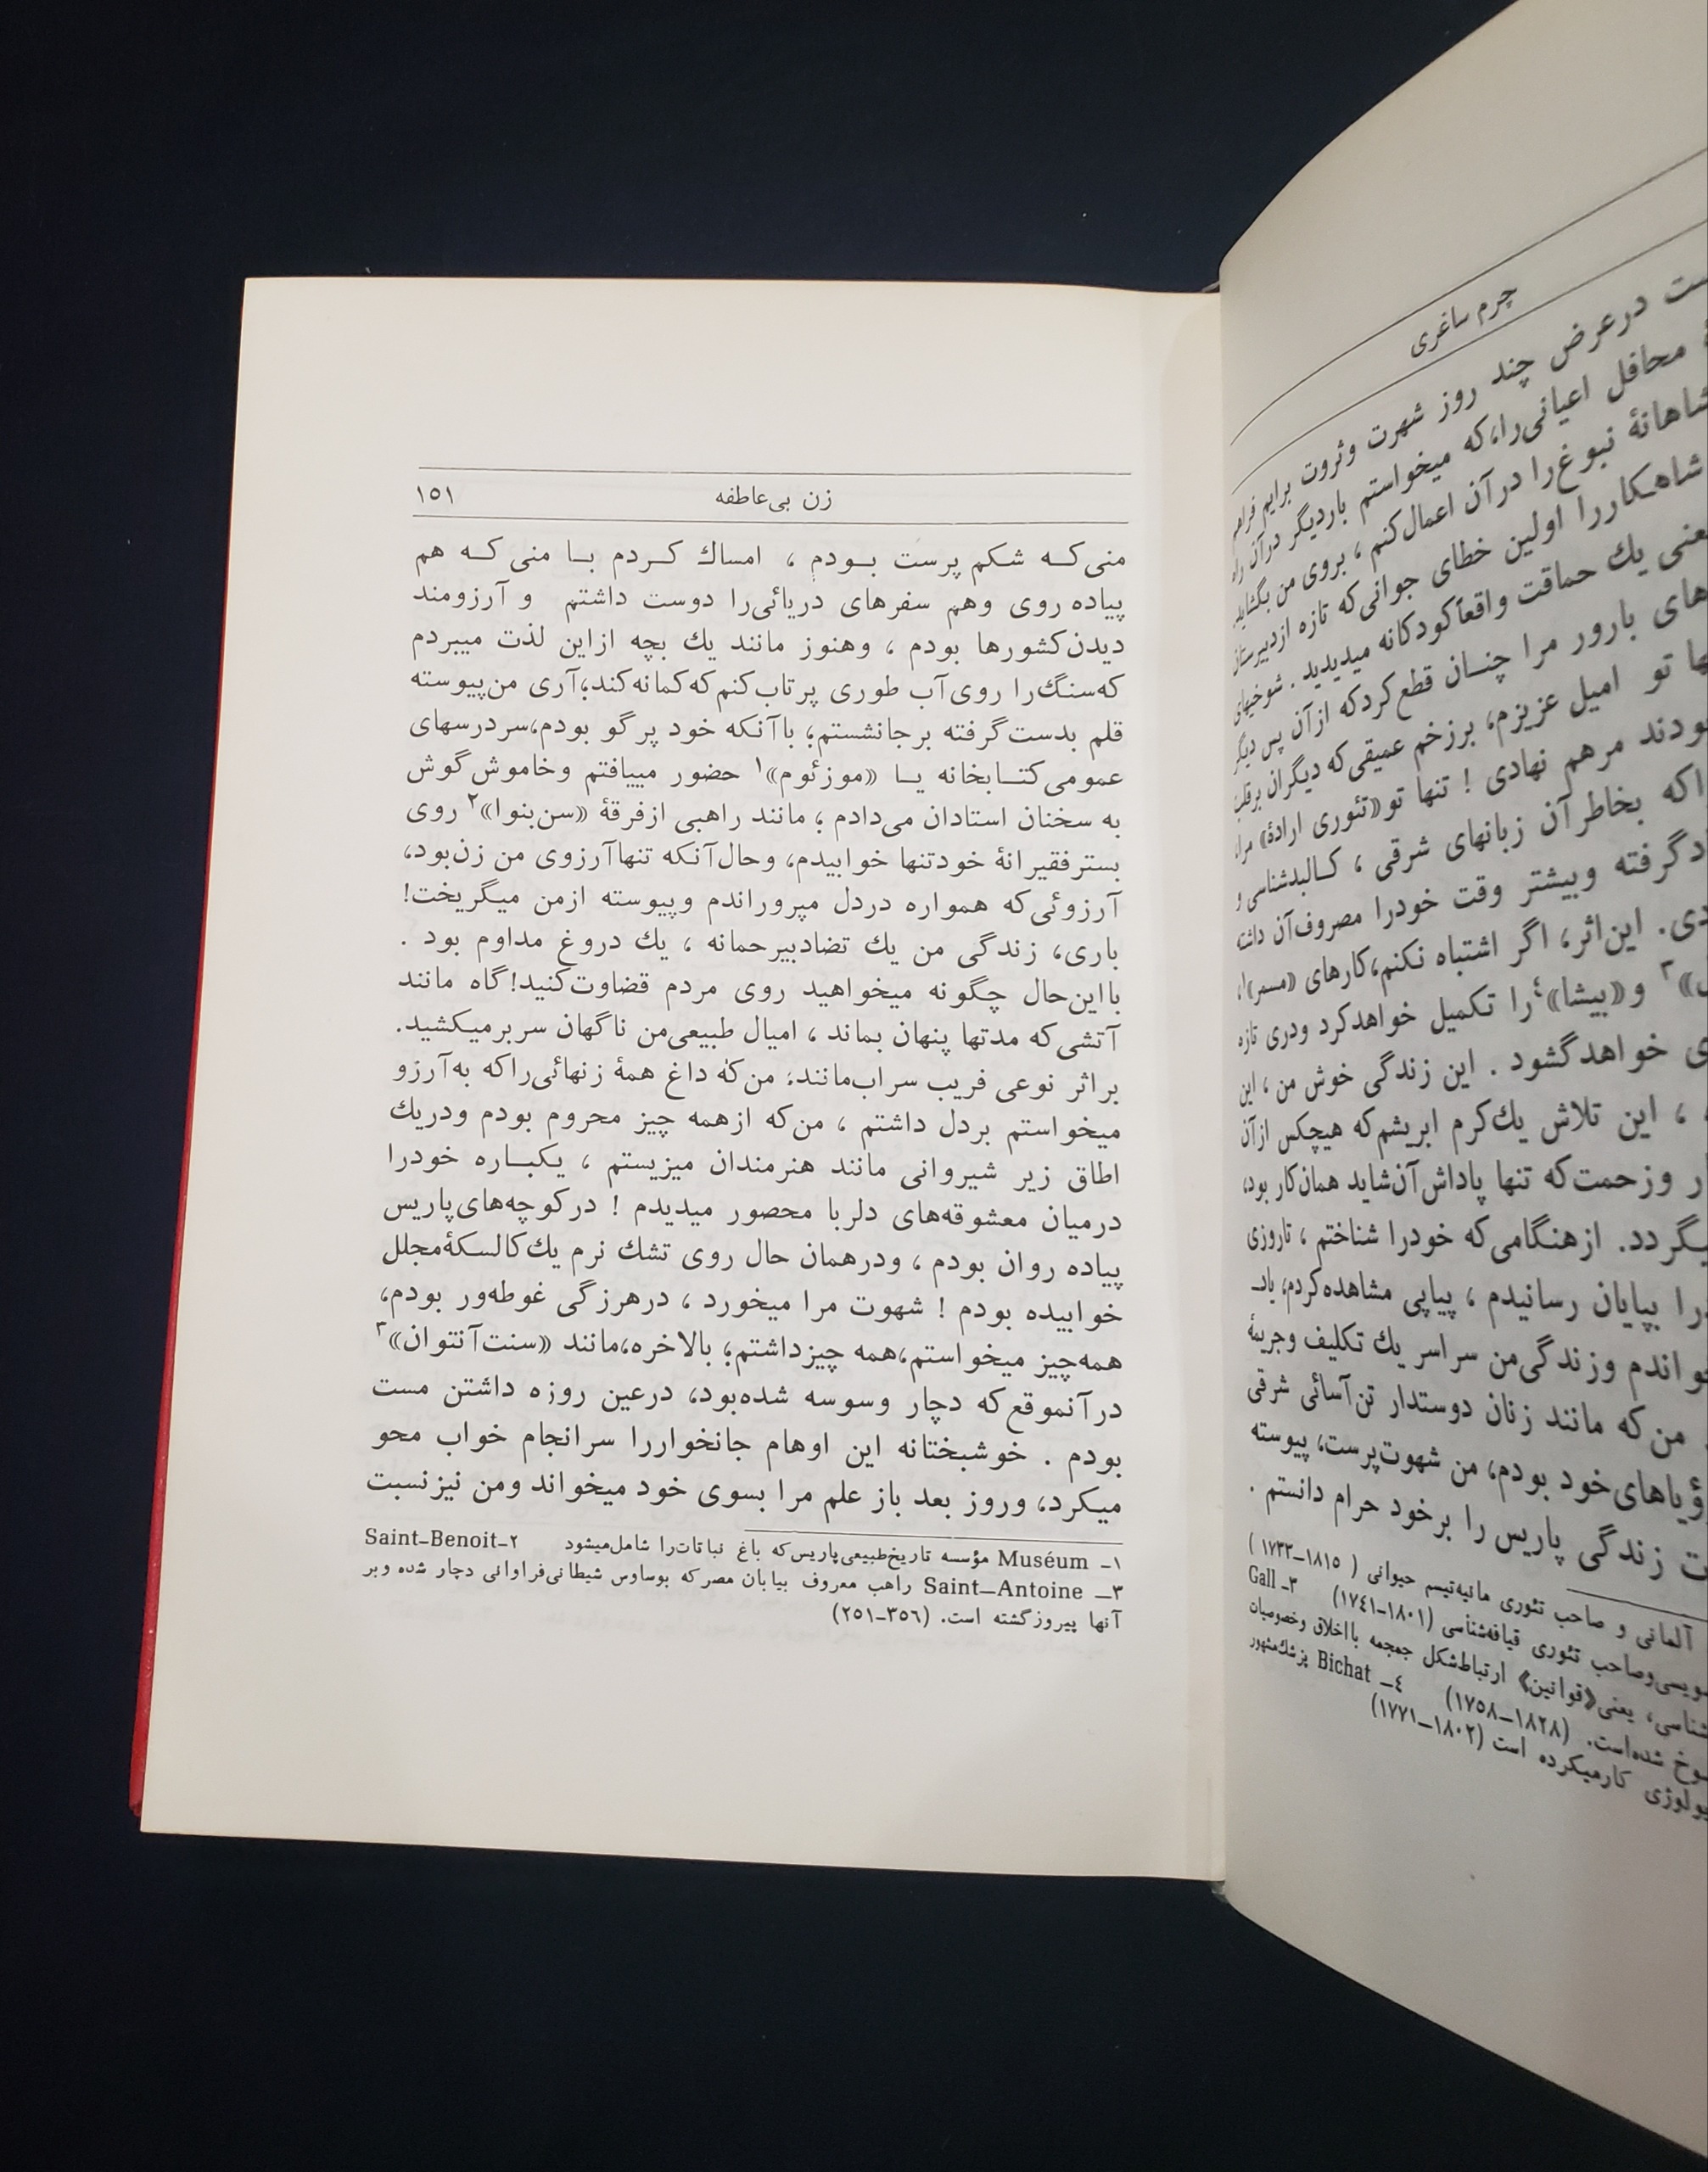 چرم ساغری
ست درعرض چند روز شهرت وثروت برایم فراهم
محافل اعیانی‌را،که میخواستم باردیگر درآن راه
شاهانهٔ نبوغ‌را درآن اعمال‌کنم ، بروی من بگشاید
شاهکاررا اولین خطای جوانی‌که تازه ازدبیرستان
یعنی یك حماقت واقعاًکودکانه میدیدید . شوخیهای
های بارور مرا چنـان قطع‌کردکه ازآن پس دیگر
ها تو امیل عزیزم، برزخم عمیقی‌که دیگران برقلب
ودند مرهم نهادی ! تنها تو «تئوری ارادهٔ» مرا
اکه بخاطرآن زبانهای شرقی ، کـالبدشناسی و
دگرفته وبیشتر وقت خودرا مصروف‌آن داشته
دی. این‌اثر، اگر اشتباه نکنم،کارهای «مسمر»۱،
»۳ و«بیشا»٤را تکمیل خواهدکرد ودری تازه
ی خواهدگشود . این زندگی خوش من ، این
، این تلاش یك‌کرم ابریشم‌که هیچکس ازآن
ر وزحمت‌که تنها پاداش‌آن‌شاید همان‌کار بود،
یگردد. ازهنگامی‌که خودرا شناختم ، تاروزی
را بپایان رسانیدم ، پیاپی مشاهده‌کردم،
واندم وزندگی‌من سراسر یك تکلیف وجریمهٔ
من‌که مانند زنان دوستدار تن‌آسائی شرقی
ؤیاهای‌خود بودم، من شهوت‌پرست، پیوسته
ت زندگی پاریس را برخود حرام دانستم .
آلمانی و صاحب تئوری مانیه‌تیسم حیوانی ( ۱۸۱۵–۱۷۳۳)
ویسی‌وصاحب تئوری قیافه‌شناسی (۱۸۰۱–۱۷٤۱) ۳– Gall
شناسی، یعنی«قوانین» ارتباط‌شکل جمجمه بااخلاق وخصوصیان
وخ شده‌است. (۱۸۲۸–۱۷۵۸) ٤– Bichat پزشك‌مشهور
یولوژی کارمیکرده است (۱۸۰۲–۱۷۷۱)
زن بی‌عاطفه ۱۵۱
منی‌کــه شکم پرست بــودم ، امساك کــردم بــا منی کــه هم
پیاده روی وهم سفرهای دریائی‌را دوست داشتم و آرزومند
دیدن‌کشورها بودم ، وهنوز مانند یك بچه ازاین لذت میبردم
که‌سنگ‌را روی‌آب طوری پرتاب‌کنم‌که‌کمانه‌کند؛آری من‌پیوسته
قلم بدست‌گرفته برجانشستم؛ باآنکه خود پرگو بودم،سردرسهای
عمومی‌کتــابخانه یــا «موزئوم»۱ حضور مییافتم وخاموش‌گوش
به سخنان استادان می‌دادم ؛ مانند راهبی ازفرقهٔ «سن‌بنوا»۲ روی
بسترفقیرانهٔ خودتنها خوابیدم، وحال‌آنکه تنهاآرزوی من زن‌بود،
آرزوئی‌که همواره دردل مپروراندم وپیوسته ازمن میگریخت!
باری، زندگی من یك تضادبیرحمانه ، یك دروغ مداوم بود .
بااین‌حال چگونه میخواهید روی مردم قضاوت‌کنید!گاه مانند
آتشی‌که مدتها پنهان بماند ، امیال طبیعی‌من ناگهان سربرمیکشید.
براثر نوعی فریب سراب‌مانند، من‌که داغ همهٔ زنهائی‌راکه به‌آرزو
میخواستم بردل داشتم ، من‌که ازهمه چیز محروم بودم ودریك
اطاق زیر شیروانی مانند هنرمندان میزیستم ، یکبــاره خودرا
درمیان معشوقه‌های دلربا محصور میدیدم ! درکوچه‌های‌پاریس
پیاده روان بودم ، ودرهمان حال روی تشك نرم یك‌کالسکهٔ‌مجلل
خوابیده بودم ! شهوت مرا میخورد ، درهرزگی غوطه‌ور بودم،
همه‌چیز میخواستم،همه چیزداشتم؛ بالاخره،مانند «سنت‌آنتوان»۳
درآنموقع‌که دچار وسوسه شده‌بود، درعین روزه داشتن مست
بودم . خوشبختانه این اوهام جانخواررا سرانجام خواب محو
میکرد، وروز بعد باز علم مرا بسوی خود میخواند ومن نیزنسبت
۱– Muséum مؤسسه تاریخ‌طبیعی‌پاریس‌که باغ نباتات‌را شامل‌میشود ۲–Saint–Benoit
۳– Saint–Antoine راهب معروف بیابان مصرکه بوساوس شیطانی‌فراوانی دچار شده وبر
آنها پیروزگشته است. (۳۵٦–۲۵۱)